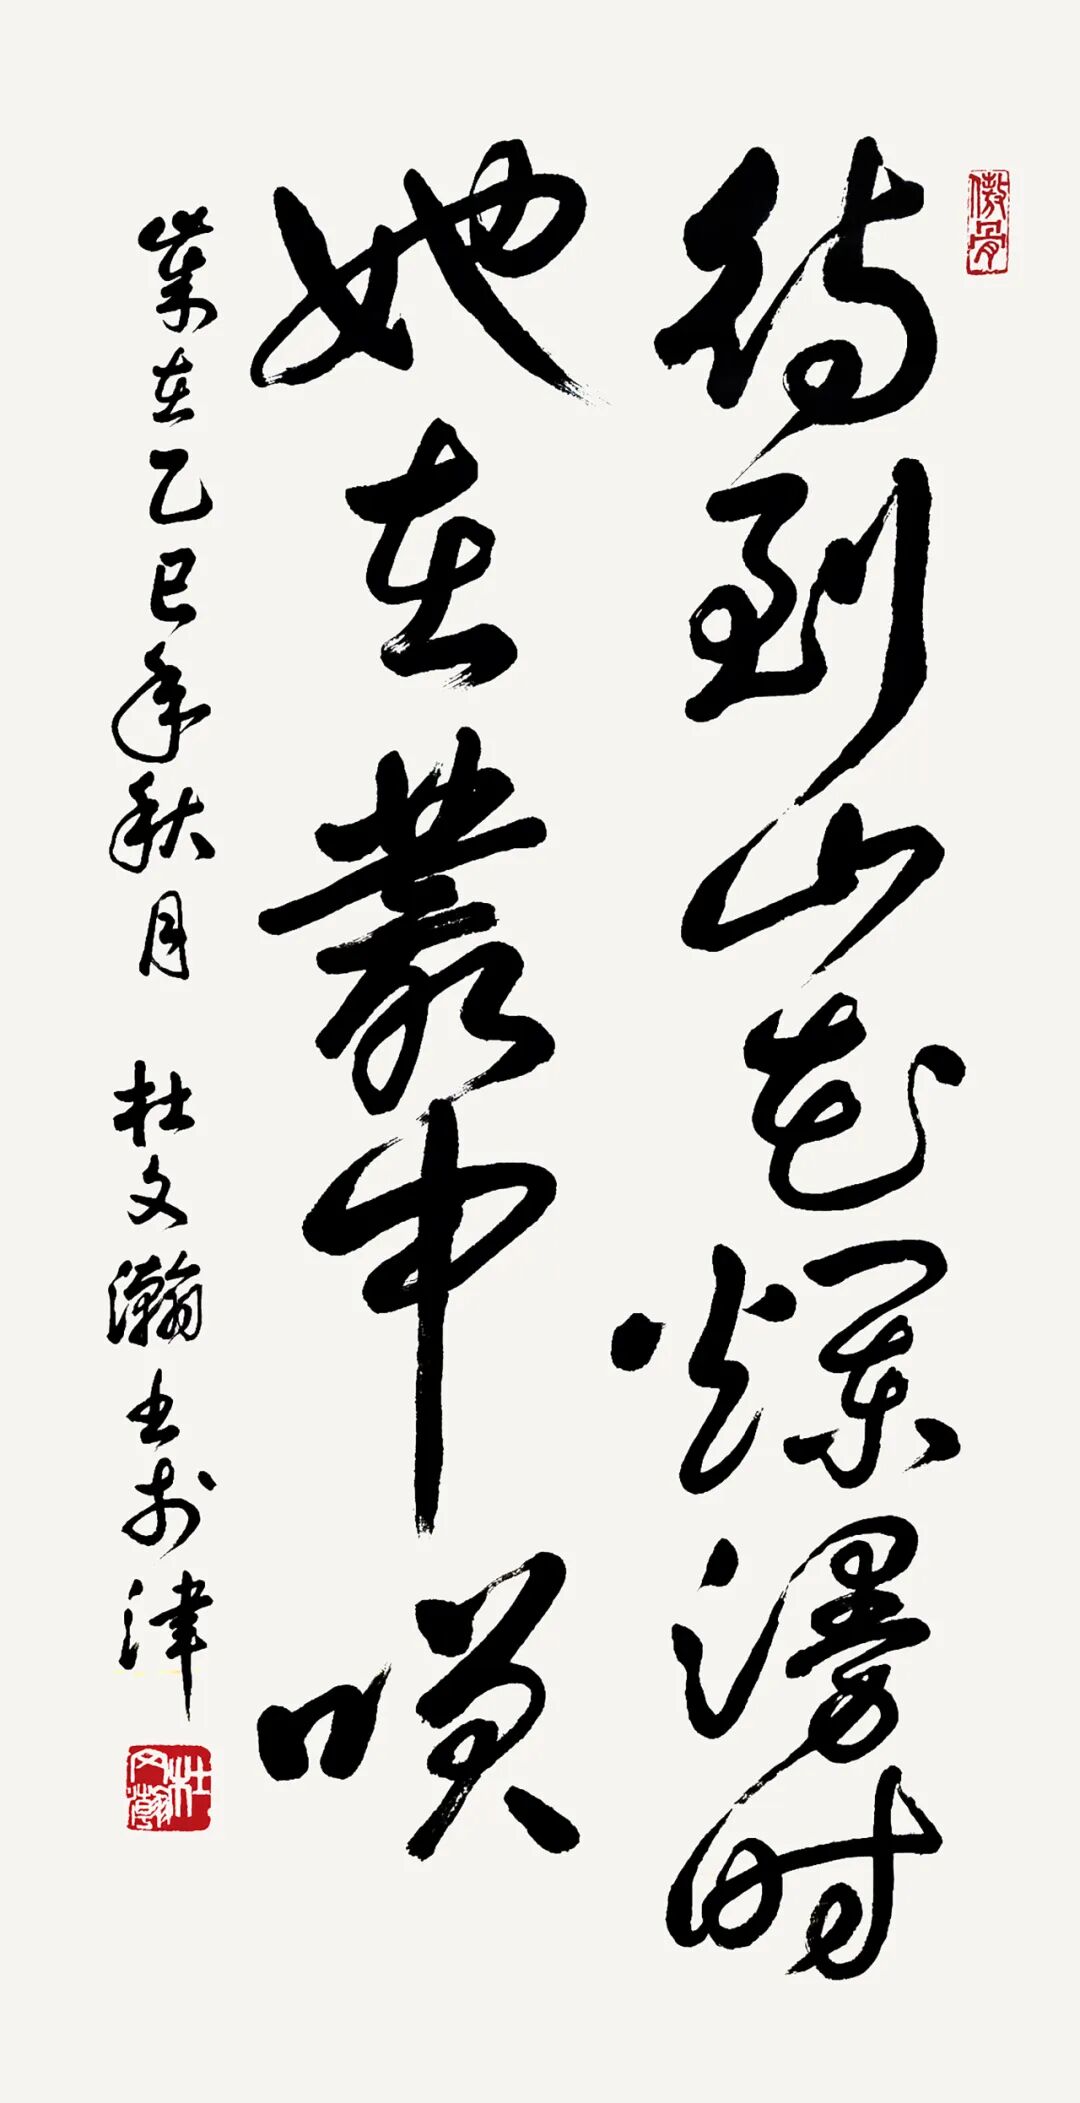 傲骨
待到山花爛漫时
她在叢中咲
歲在乙巳年秋月 杜文瀚书於津
杜文瀚